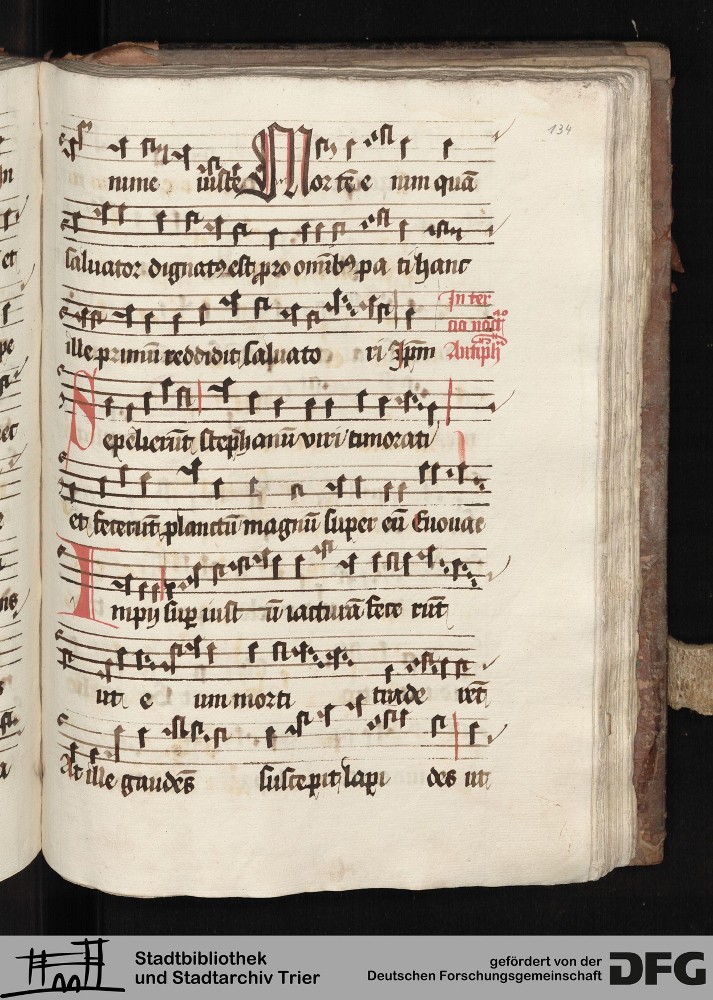 134
mine iuste Mortē e nim quā
saluator dignatꝰ est pro omībꝰ pa ti hanc
ille primū reddidit saluato ri Ipm̄
In ter
cia noct̄
Antiph̄
Sepelierūt stephanū viri timorati
et fecerūt planctū magnū super eū Euouae
Impij suꝑ iust ū iacturā fece rūt
ut e um morti trade rēt
At ille gaudēs suscepit lapi des ut
Stadtbibliothek
und Stadtarchiv Trier
gefördert von der
Deutschen Forschungsgemeinschaft
DFG